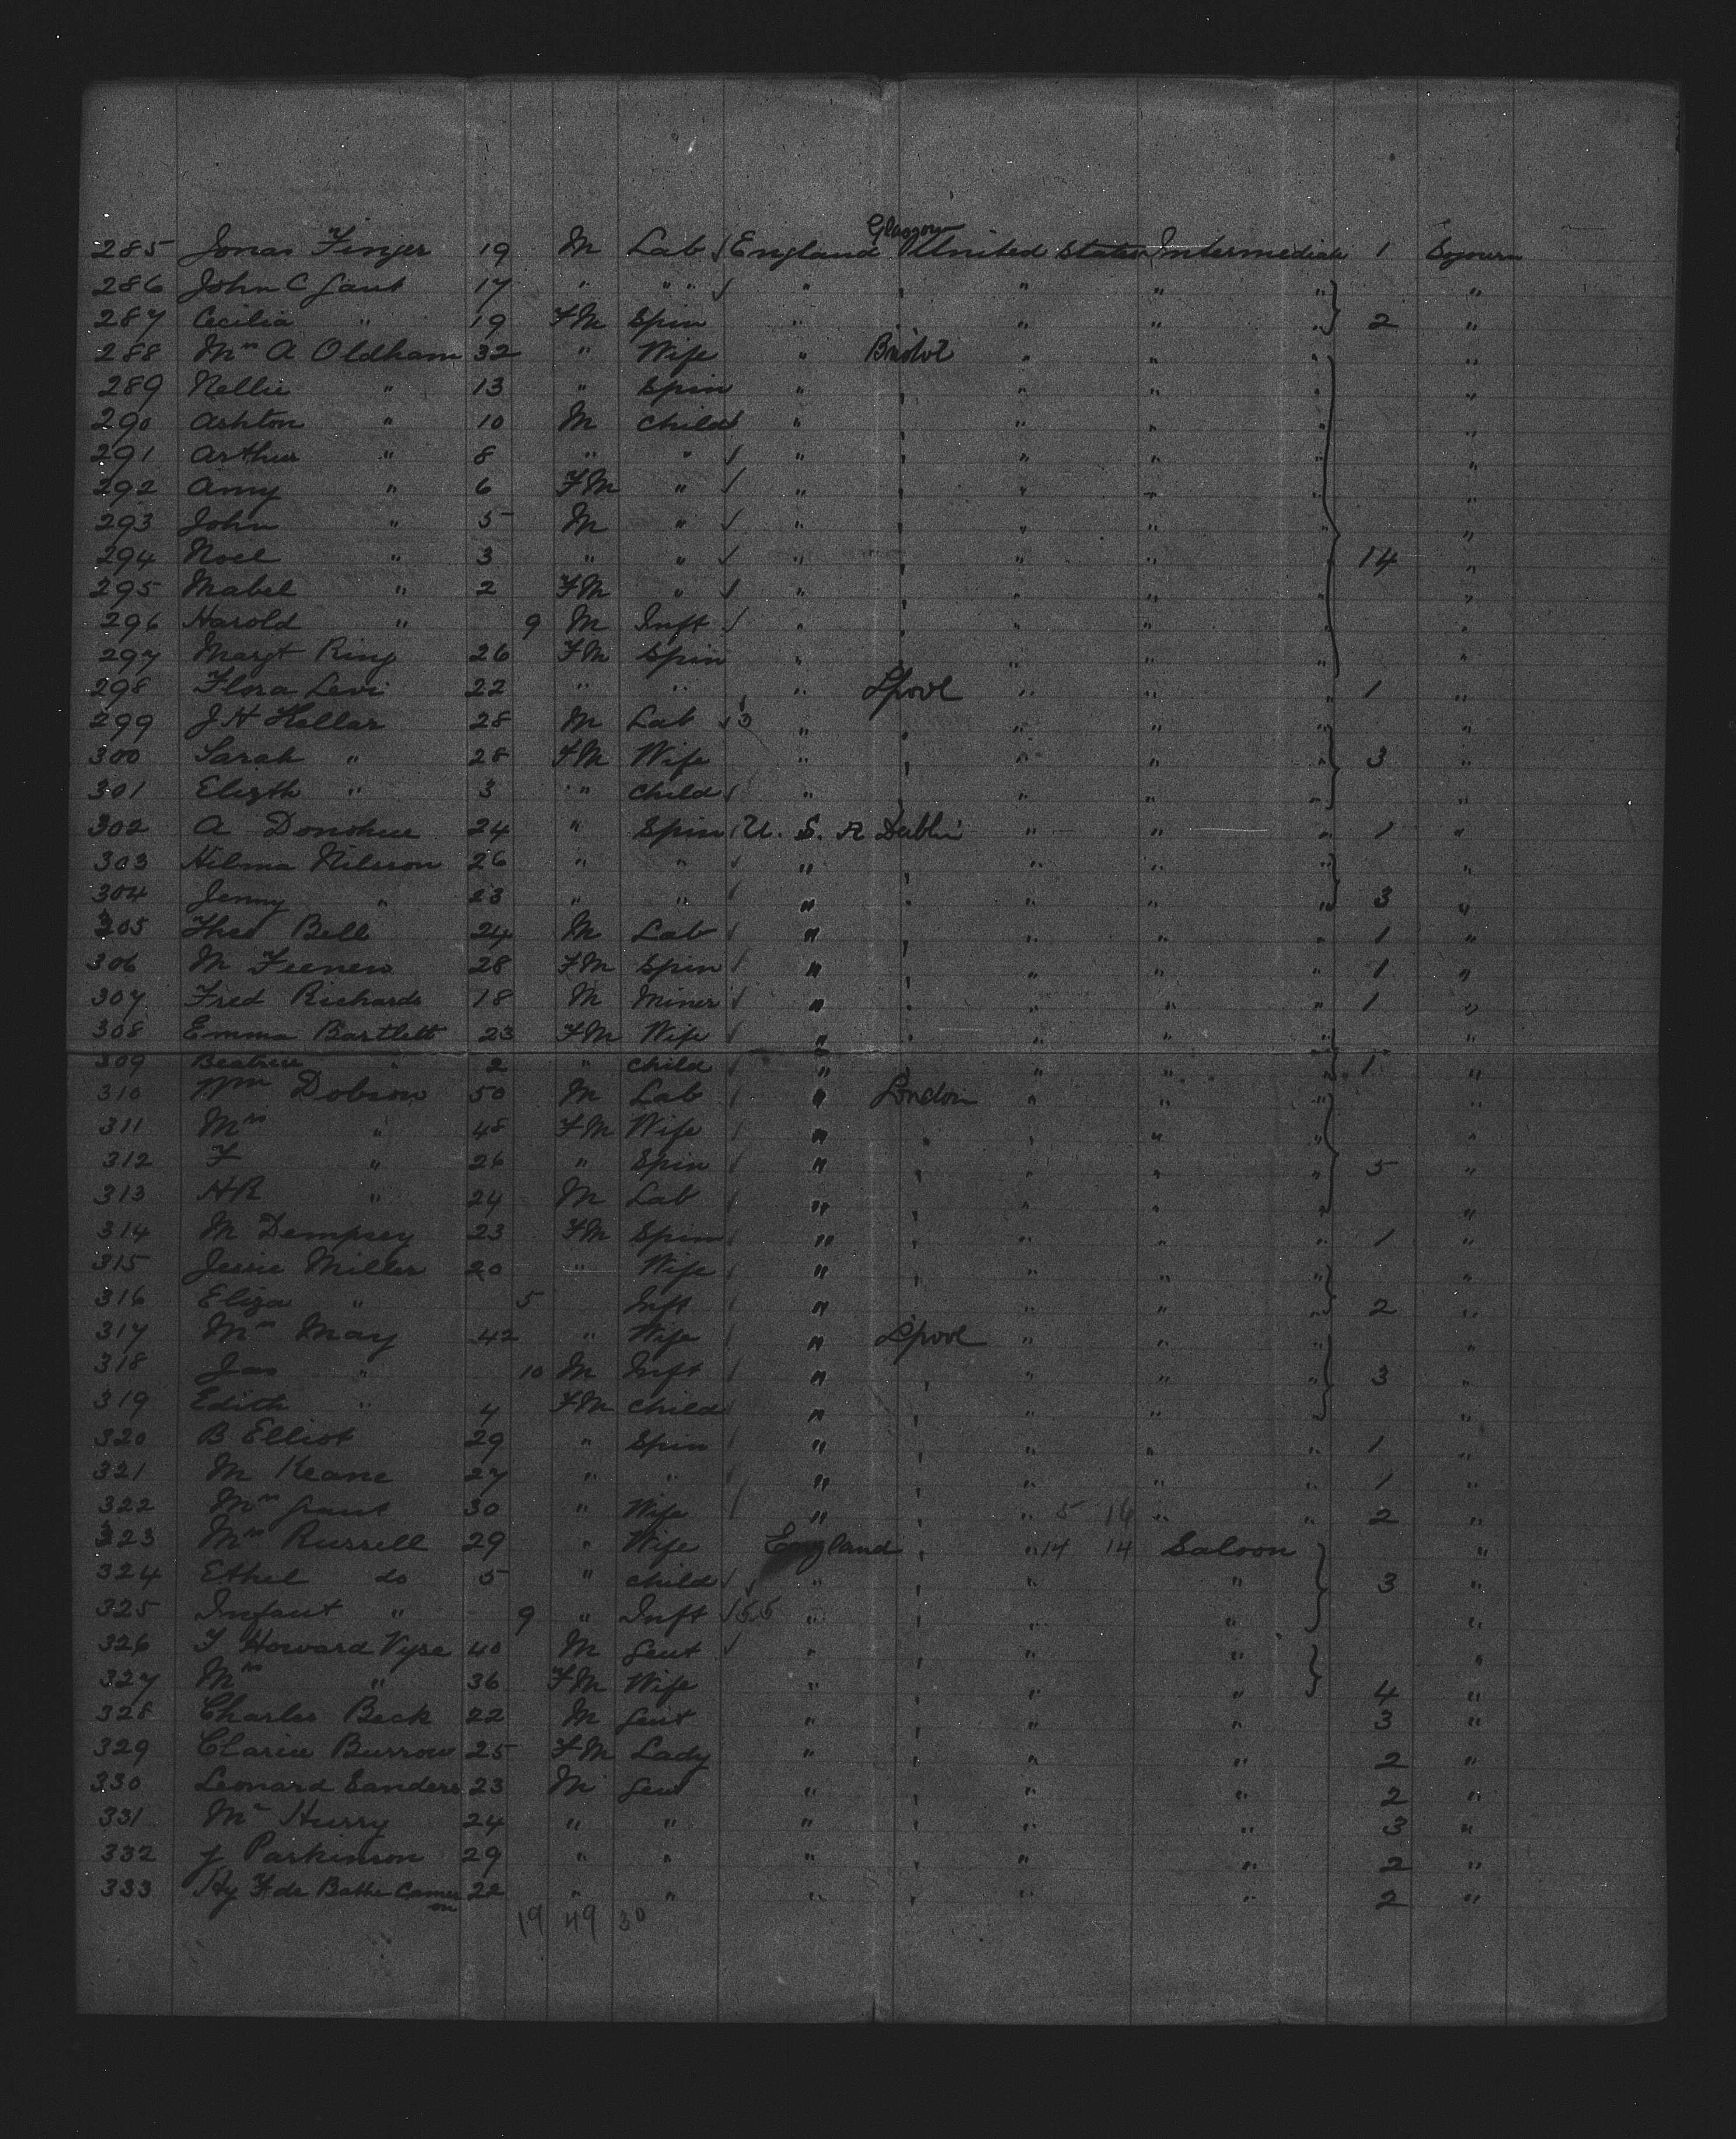 Glasgow
285 Jonas Finger 19 M Lab ✓ England United States Intermediate 1 Sojourn
286 John C Gaut 17 " " " ✓ " " " " " "
287 Cecilia " 19 FM Spin " " " " " 2 "
288 Mrs A Oldham 32 " Wife " Bristol " " " "
289 Nellie " 13 " Spin " " " " " "
290 Ashton " 10 M Child ✓ " " " " " "
291 Arthur " 8 " " ✓ " " " " " "
292 Amy " 6 FM " ✓ " " " " " "
293 John " 5 M " ✓ " " " " " "
294 Noel " 3 " " ✓ " " " " " 14 "
295 Mabel " 2 FM " ✓ " " " " " "
296 Harold " 9 M Inft ✓ " " " " " "
297 Margt Ring 26 FM Spin " " " " " "
298 Flora Levi 22 " " " Lpool " " " 1 "
299 J H Hallar 28 M Lab ✓ 3 " " " " " "
300 Sarah " 28 FM Wife " " " " " 3 "
301 Elizth " 3 " Child ✓ " " " " " "
302 A Donohue 24 " Spin U. S. A Dublin " " " 1 "
303 Hilma Nilsson 26 " " " " " " " "
304 Jenny " 23 " " " " " " " 3 "
305 Theo Bell 24 M Lab " " " " " 1 "
306 M 28 FM Spin " " " " " 1 "
307 Fred Richards 18 M Miner " " " " " 1 "
308 Emma Bartlett 23 FM Wife " " " " " "
309 Beatrice " 2 " Child " " " " " 1 "
310 Wm Dobson 50 M Lab " London " " " "
311 Mrs " 48 FM Wife " " " " " "
312 F " 26 " Spin " " " " " 5 "
313 HR " 24 M Lab " " " " " "
314 M Dempsey 23 FM Spin " " " " " 1 "
315 Jessie Miller 20 " Wife " " " " " "
316 Eliza " 5 Inft " " " " " 2 "
317 Mrs May 42 " Wife " L'pool " " " "
318 Jas " 10 M Inft " " " " " 3 "
319 Edith " 4 FM Child " " " " " "
320 B Elliot 29 " Spin " " " " " 1 "
321 M Keane 27 " " " " " " " 1 "
322 Mrs Grant 30 " Wife " " " 5 14 " " 2 "
323 Mrs Russell 29 " Wife England " " 14 14 Saloon "
324 Ethel do 5 " Child ✓ " " " " 3 "
325 Infant " 9 " Inft ✓ 55 " " " " "
326 J Howard Vyse 40 M Gent ✓ " " " " "
327 Mrs " 36 FM Wife " " " " 4 "
328 Charles Beck 22 M Gent " " " " 3 "
329 Clarice Burrow 25 FM Lady " " " " 2 "
330 Leonard Sanders 23 M Gent " " " " 2 "
331 Mr Hurry 24 " " " " " " 3 "
332 J Parkinson 29 " " " " " " 2 "
333 Hy F de Bathe Cameron 22 " " " " " " 2 "
19 49 30